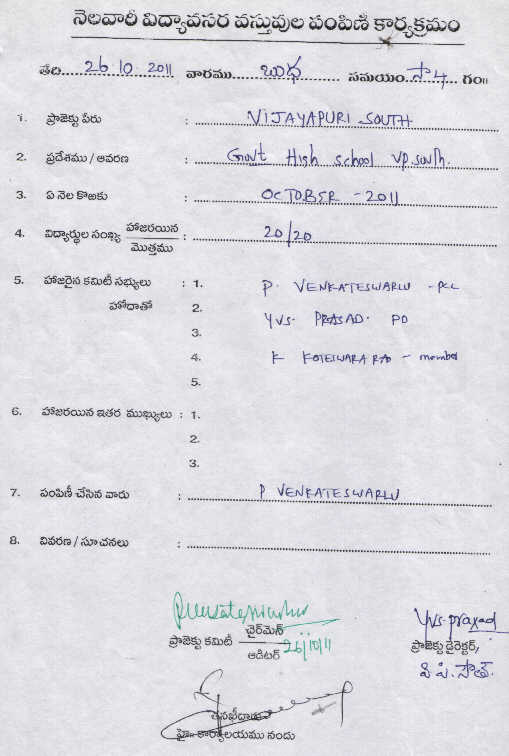 నెలవారీ విద్యావసర వస్తువుల పంపిణీ కార్యక్రమం
తేది 26 10 2011 వారము బుధ సమయం సా 4 గం॥
1. ప్రాజెక్టు పేరు : VIJAYAPURI SOUTH
2. ప్రదేశము / ఆవరణ : Govt High school VP. South.
3. ఏ నెల కొఱకు : OCTOBER - 2011
4. విద్యార్థుల సంఖ్య హాజరయిన / మొత్తము : 20/20
5. హాజరైన కమిటీ సభ్యులు : 1. P. VENKATESWARLU - PCC
హోదాతో 2. YVS. PRASAD. PD
3.
4. K KOTESWARA RAO - member
5.
6. హాజరయిన ఇతర ముఖ్యులు : 1.
2.
3.
7. పంపిణీ చేసిన వారు : P VENKATESWARLU
8. వివరణ / సూచనలు :
ప్రాజెక్టు కమిటీ చైర్‌మెన్ / ఆడిటర్ 26/10/11
Yvs. prasad
ప్రాజెక్టు డైరెక్టర్,
వి.పి. సౌత్.
తనిఖీదారు
హై. కార్యాలయము నందు